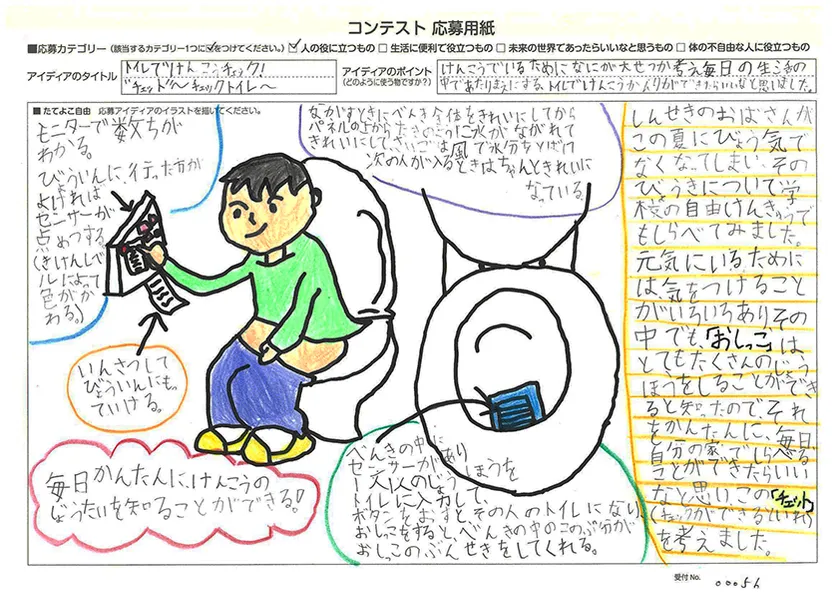 コンテスト 応募用紙
■応募カテゴリー（該当するカテゴリー1つに☑をつけてください。） ☑ 人の役に立つもの □ 生活に便利で役立つもの □ 未来の世界であったらいいなと思うもの □ 体の不自由な人に役立つもの
アイディアのタイトル
トイレでけんこうチェック!
アイディアのポイント
（どのように使う物ですか？）
けんこうでいるためになにが大せつか考え毎日の生活の
■ たてよこ自由 応募アイディアのイラストを描いてください。
モニターで数ちが
わかる。
びょういんに、行った方が
よければ
センサーが
点めつする
(きけんレベ
ルによって
色がか
わる。)
いんさつして
びょういんにもっ
ていける。
毎日かんたんに、けんこうの
じょうたいを知ることができる!
ながすときにべんき全体をきれいにしてから
パネルの上からたきのように水が ながれて
きれいにして、さいごは風で水分をとばす
次の人が入るときはちゃんときれいに
なっている。
べんきの中に
センサーがあり
1人1人のじょうほうを
トイレに入力して、
ボタンをおすとその人のトイレになり
おしっこをすると、べんきの中のこのぶ分が
おしっこのぶんせきをしてくれる。
しんせきのおばさんが
この夏にびょう気で
なくなってしまい、その
びょうきについて学
校の自由けんきゅうで
もしらべてみました。
元気にいるために
は、気をつけること
がいろいろありその
中でも、「おしっこ」は
とてもたくさんのじょう
ほうをしることができ
ると知ったので、それ
をかんたんに、毎日
自分の家でしらべる
ことができたらいい
なと思い、この「チェット」
(チェックができるといれ)
を考えました。
受付 No. 00056